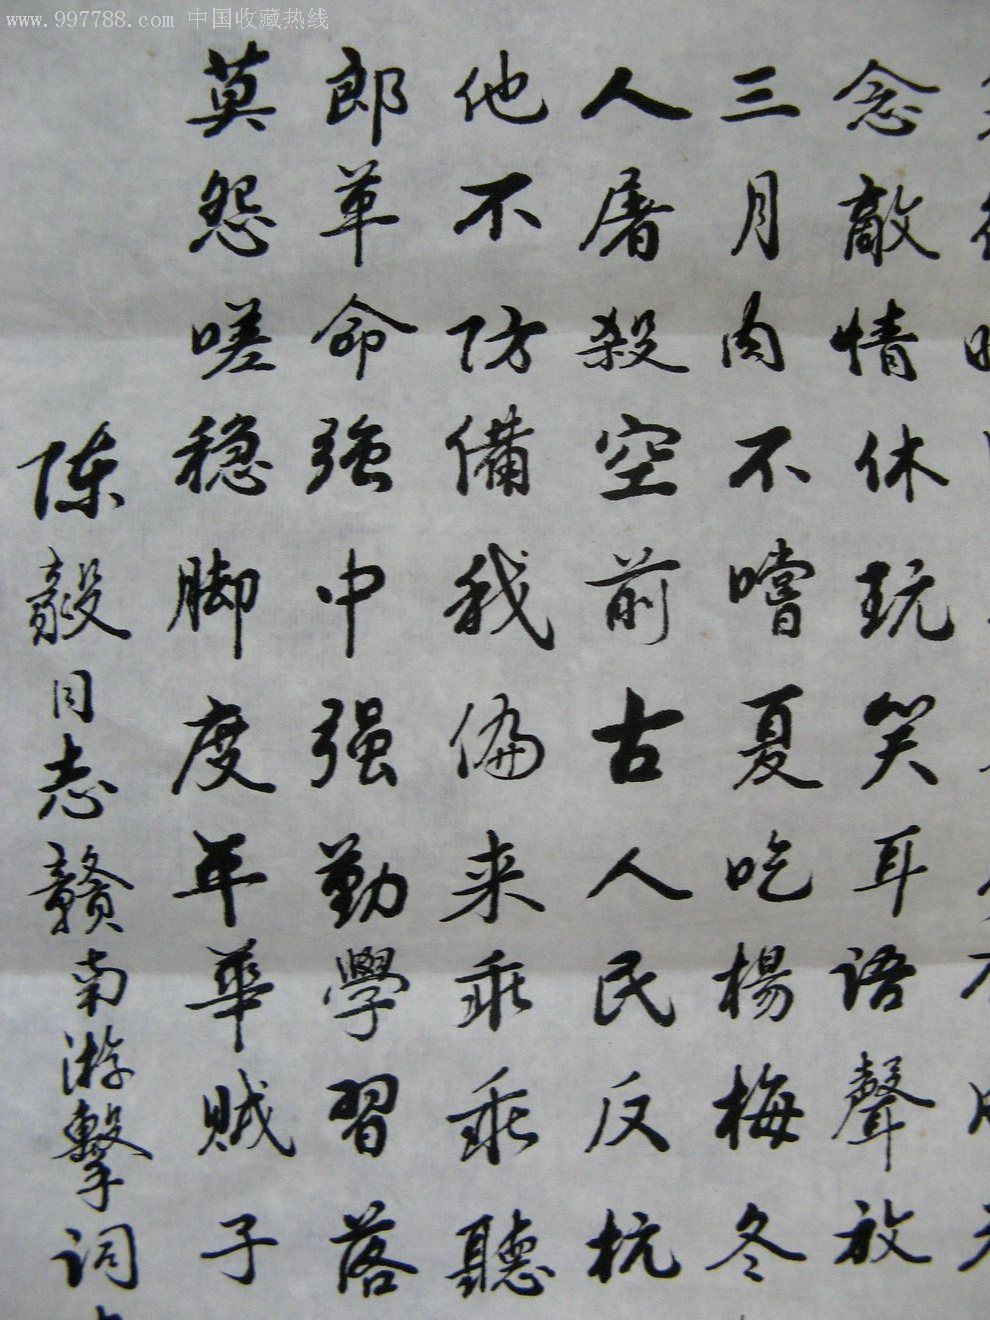 www.997788.com 中国收藏热线
念敵情休玩笑耳語聲放
三月肉不嚐夏吃楊梅冬
人屠殺空前古人民反抗
他不防備我偏来乖乖聽
郎革命強中强勤學習落
莫怨嗟稳脚度年華賊子
陈毅同志赣南游擊词